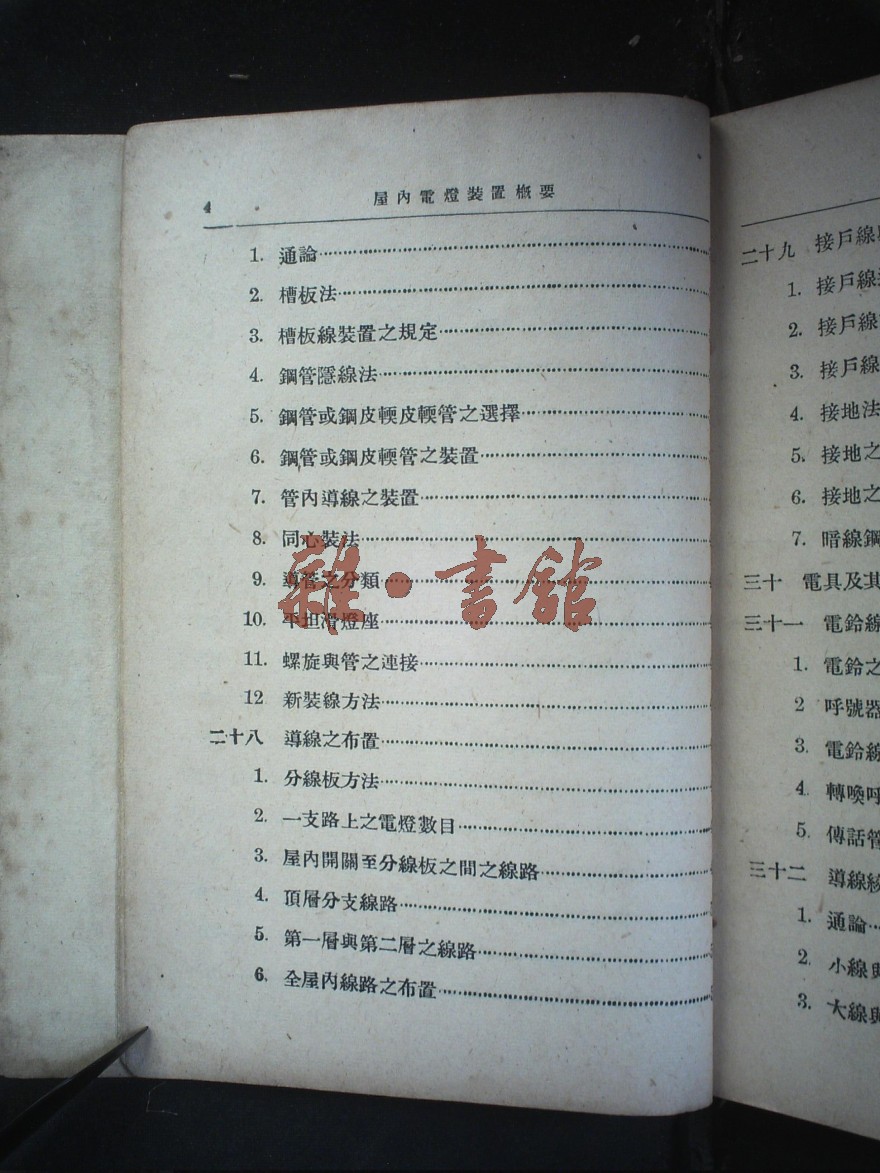 4 屋內電燈裝置概要
1. 通論
2. 槽板法
3. 槽板線裝置之規定
4. 鋼管隱線法
5. 鋼管或鋼皮輭皮輭管之選擇
6. 鋼管或鋼皮輭管之裝置
7. 管內導線之裝置
8. 同心裝法
9. 導管之分類
10. 平担滑燈座
11. 螺旋與管之連接
12 新裝線方法
二十八 導線之布置
1. 分線板方法
2. 一支路上之電燈數目
3. 屋內開關至分線板之間之線路
4. 頂層分支線路
5. 第一層與第二層之線路
6. 全屋內線路之布置
雜·書館
二十九 接戶線
1. 接戶線
2. 接戶線
3. 接戶線
4. 接地法
5. 接地之
6. 接地之
7. 暗線鋼
三十 電具及其
三十一 電鈴線
1. 電鈴之
2 呼號器
3. 電鈴線
4. 轉喚呼
5. 傳話管
三十二 導線
1. 通論
2. 小線與
3. 大線與